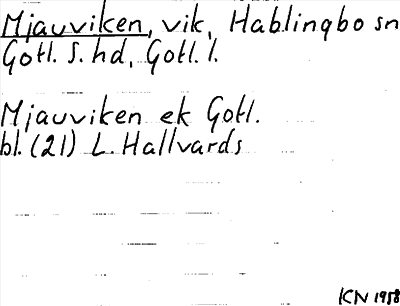 Mjauviken, vik, Hablingbo sn
Gotl. S. hd, Gotl. l.
Mjauviken ek Gotl.
bl. (21) L. Hallvards
KN 1958